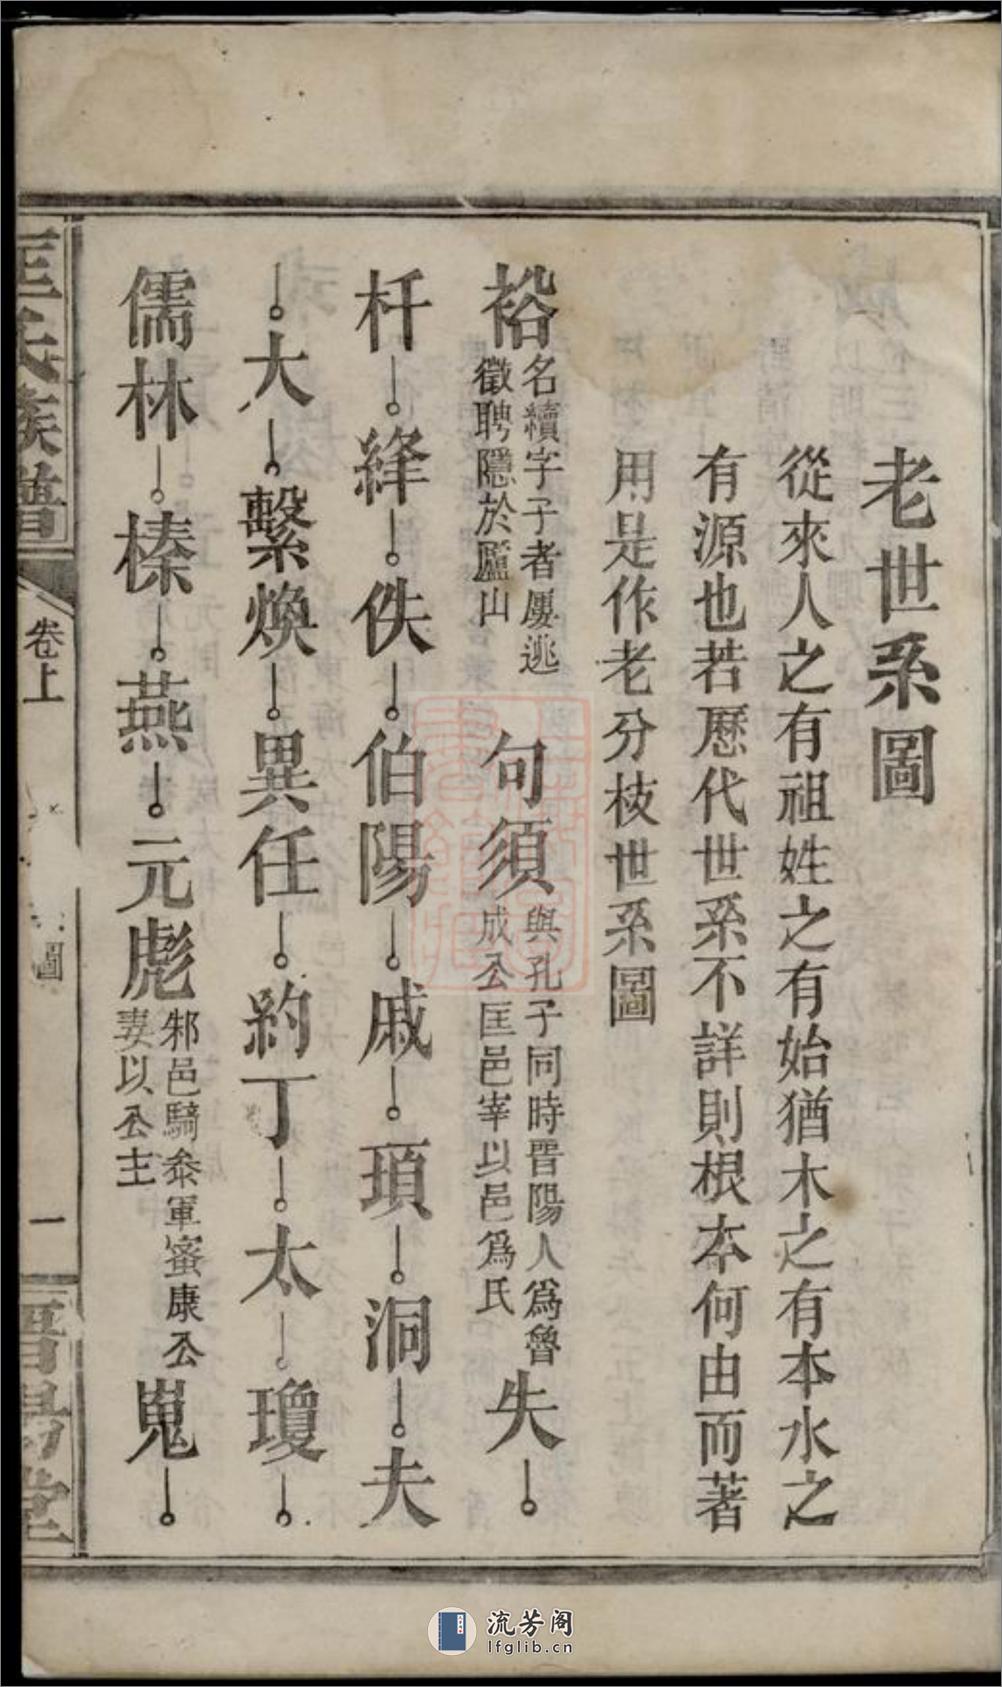 老世系圖
從來人之有祖姓之有始猶木之有本水之
有源也若歷代世系不詳則根本何由而著
用是作老分枝世系圖
裕
名續字子者屡逃
徵聘隱於廬山
句須
與孔子同時晋陽人為魯
成公匡邑宰以邑為氏
失
杆 絳 佚 伯陽 戚 頊 洞 夫
大 繫煥 異任 約丁 太 瓊
儒林 榛 燕 元彪
邾邑騎叅軍蜜康公
妻以公主
嵬
匡氏族譜
卷上
圖
一
晋昜堂
流芳阁
lfglib.cn